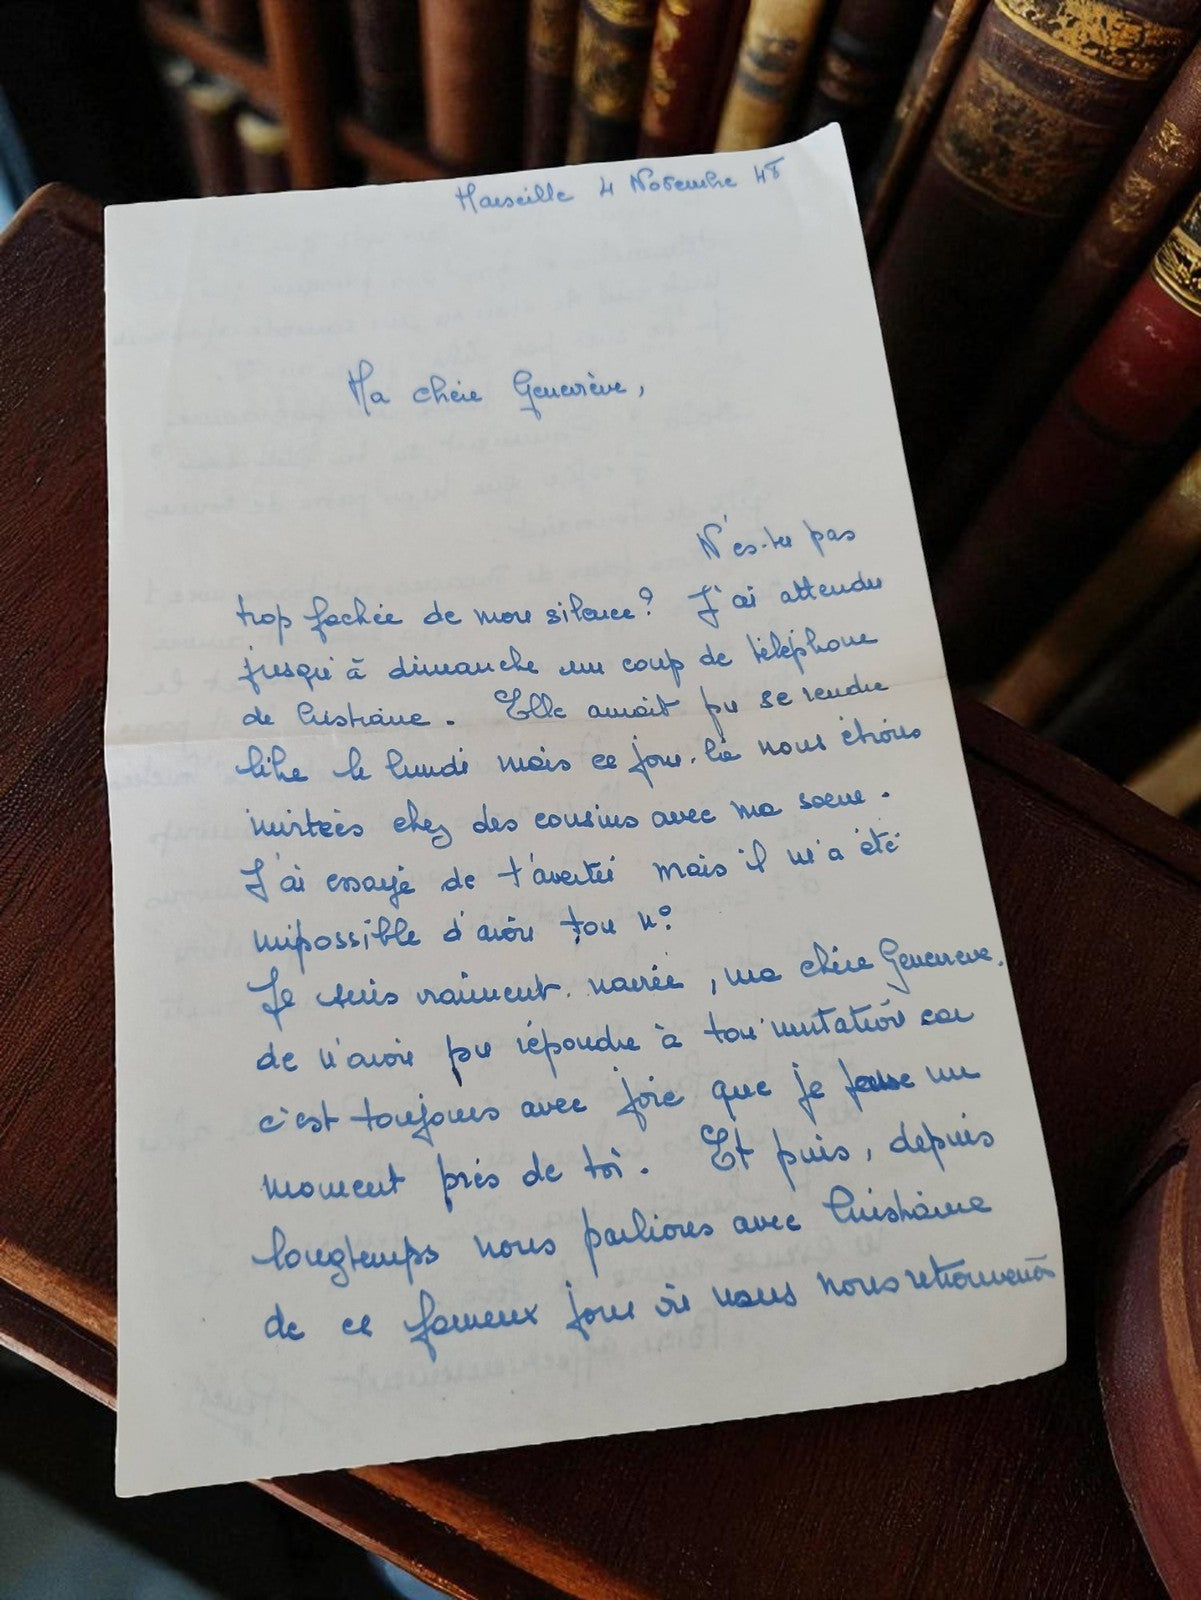 Marseille 4 Novembre 48
Ma chère Geneviève,
N'es-tu pas
trop fachée de mon silence? J'ai attendu
jusqu'à dimanche un coup de téléphone
de Christiane. Elle aurait pu se rendre
libre le lundi mais ce jour-là nous étions
invitées chez des cousins avec ma soeur.
J'ai essayé de t'avertir mais il m'a été
impossible d'avoir ton n°
Je suis vraiment navrée, ma chère Geneviève,
de n'avoir pu répondre à ton invitation car
c'est toujours avec joie que je passe un
moment près de toi. Et puis, depuis
longtemps nous parlions avec Christiane
de ce fameux jour où nous nous retrouverions